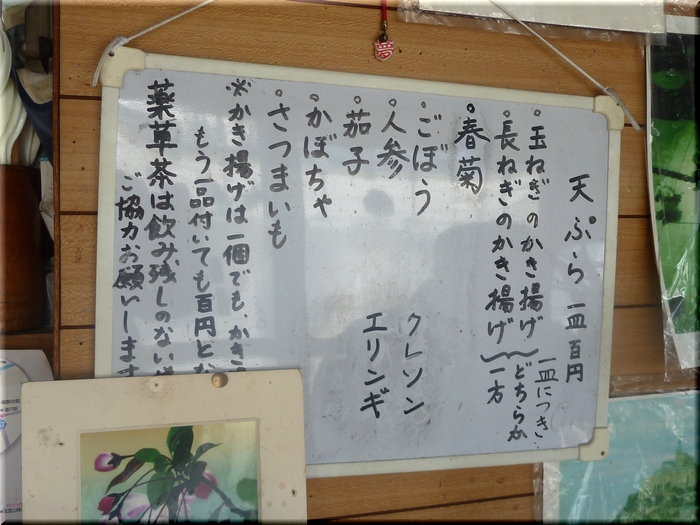 天ぷら 一皿百円
・玉ねぎのかき揚げ
・長ねぎのかき揚げ
一皿につき
どちらか
一方
・春菊
・ごぼう
クレソン
・人参
エリンギ
・茄子
・かぼちゃ
・さつまいも
※かき揚げは一個でも、かき
もう一品付いても百円とな
薬草茶は飲み残しのない
ご協力お願いします
夢